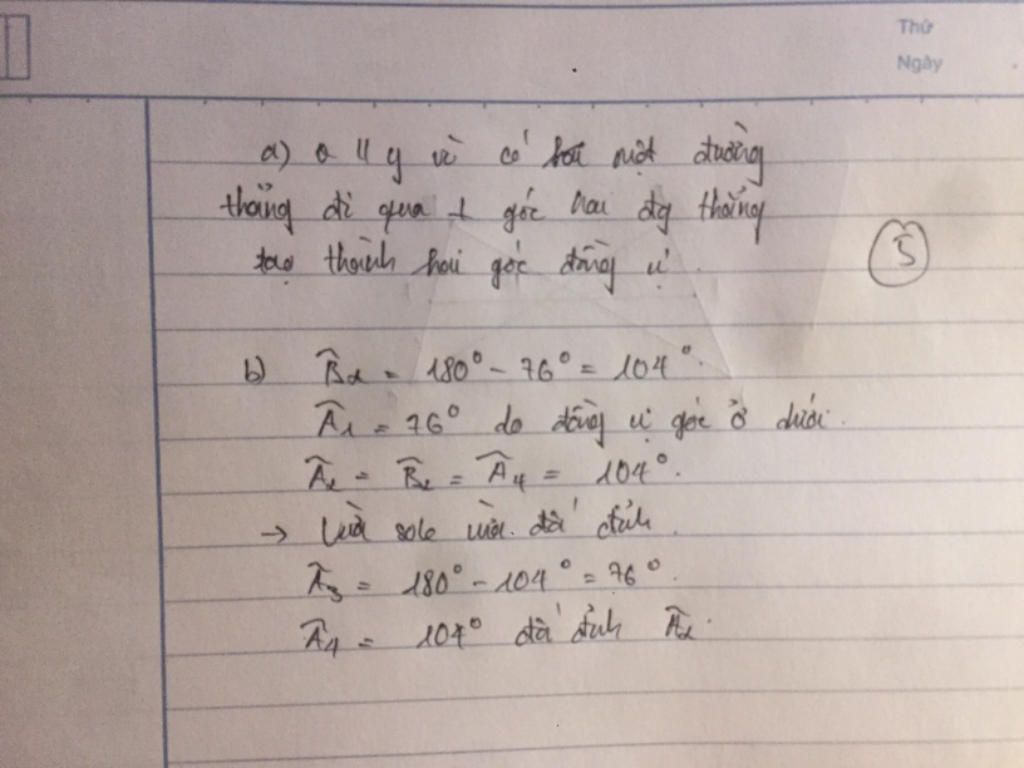 Thứ
Ngày
a) a // y vì có hai một đường
thẳng đi qua 1 góc hai đg thẳng
tạo thành hai góc đồng vị.
5
b) B̂₂ = 180° - 76° = 104°.
Â₁ = 76° do đồng vị góc ở dưới.
Â₂ = B̂₂ = Â₄ = 104°.
→ Vừa sole vừa đối đỉnh.
Â₃ = 180° - 104° = 76°.
Â₄ = 104° đối đỉnh Â₂.